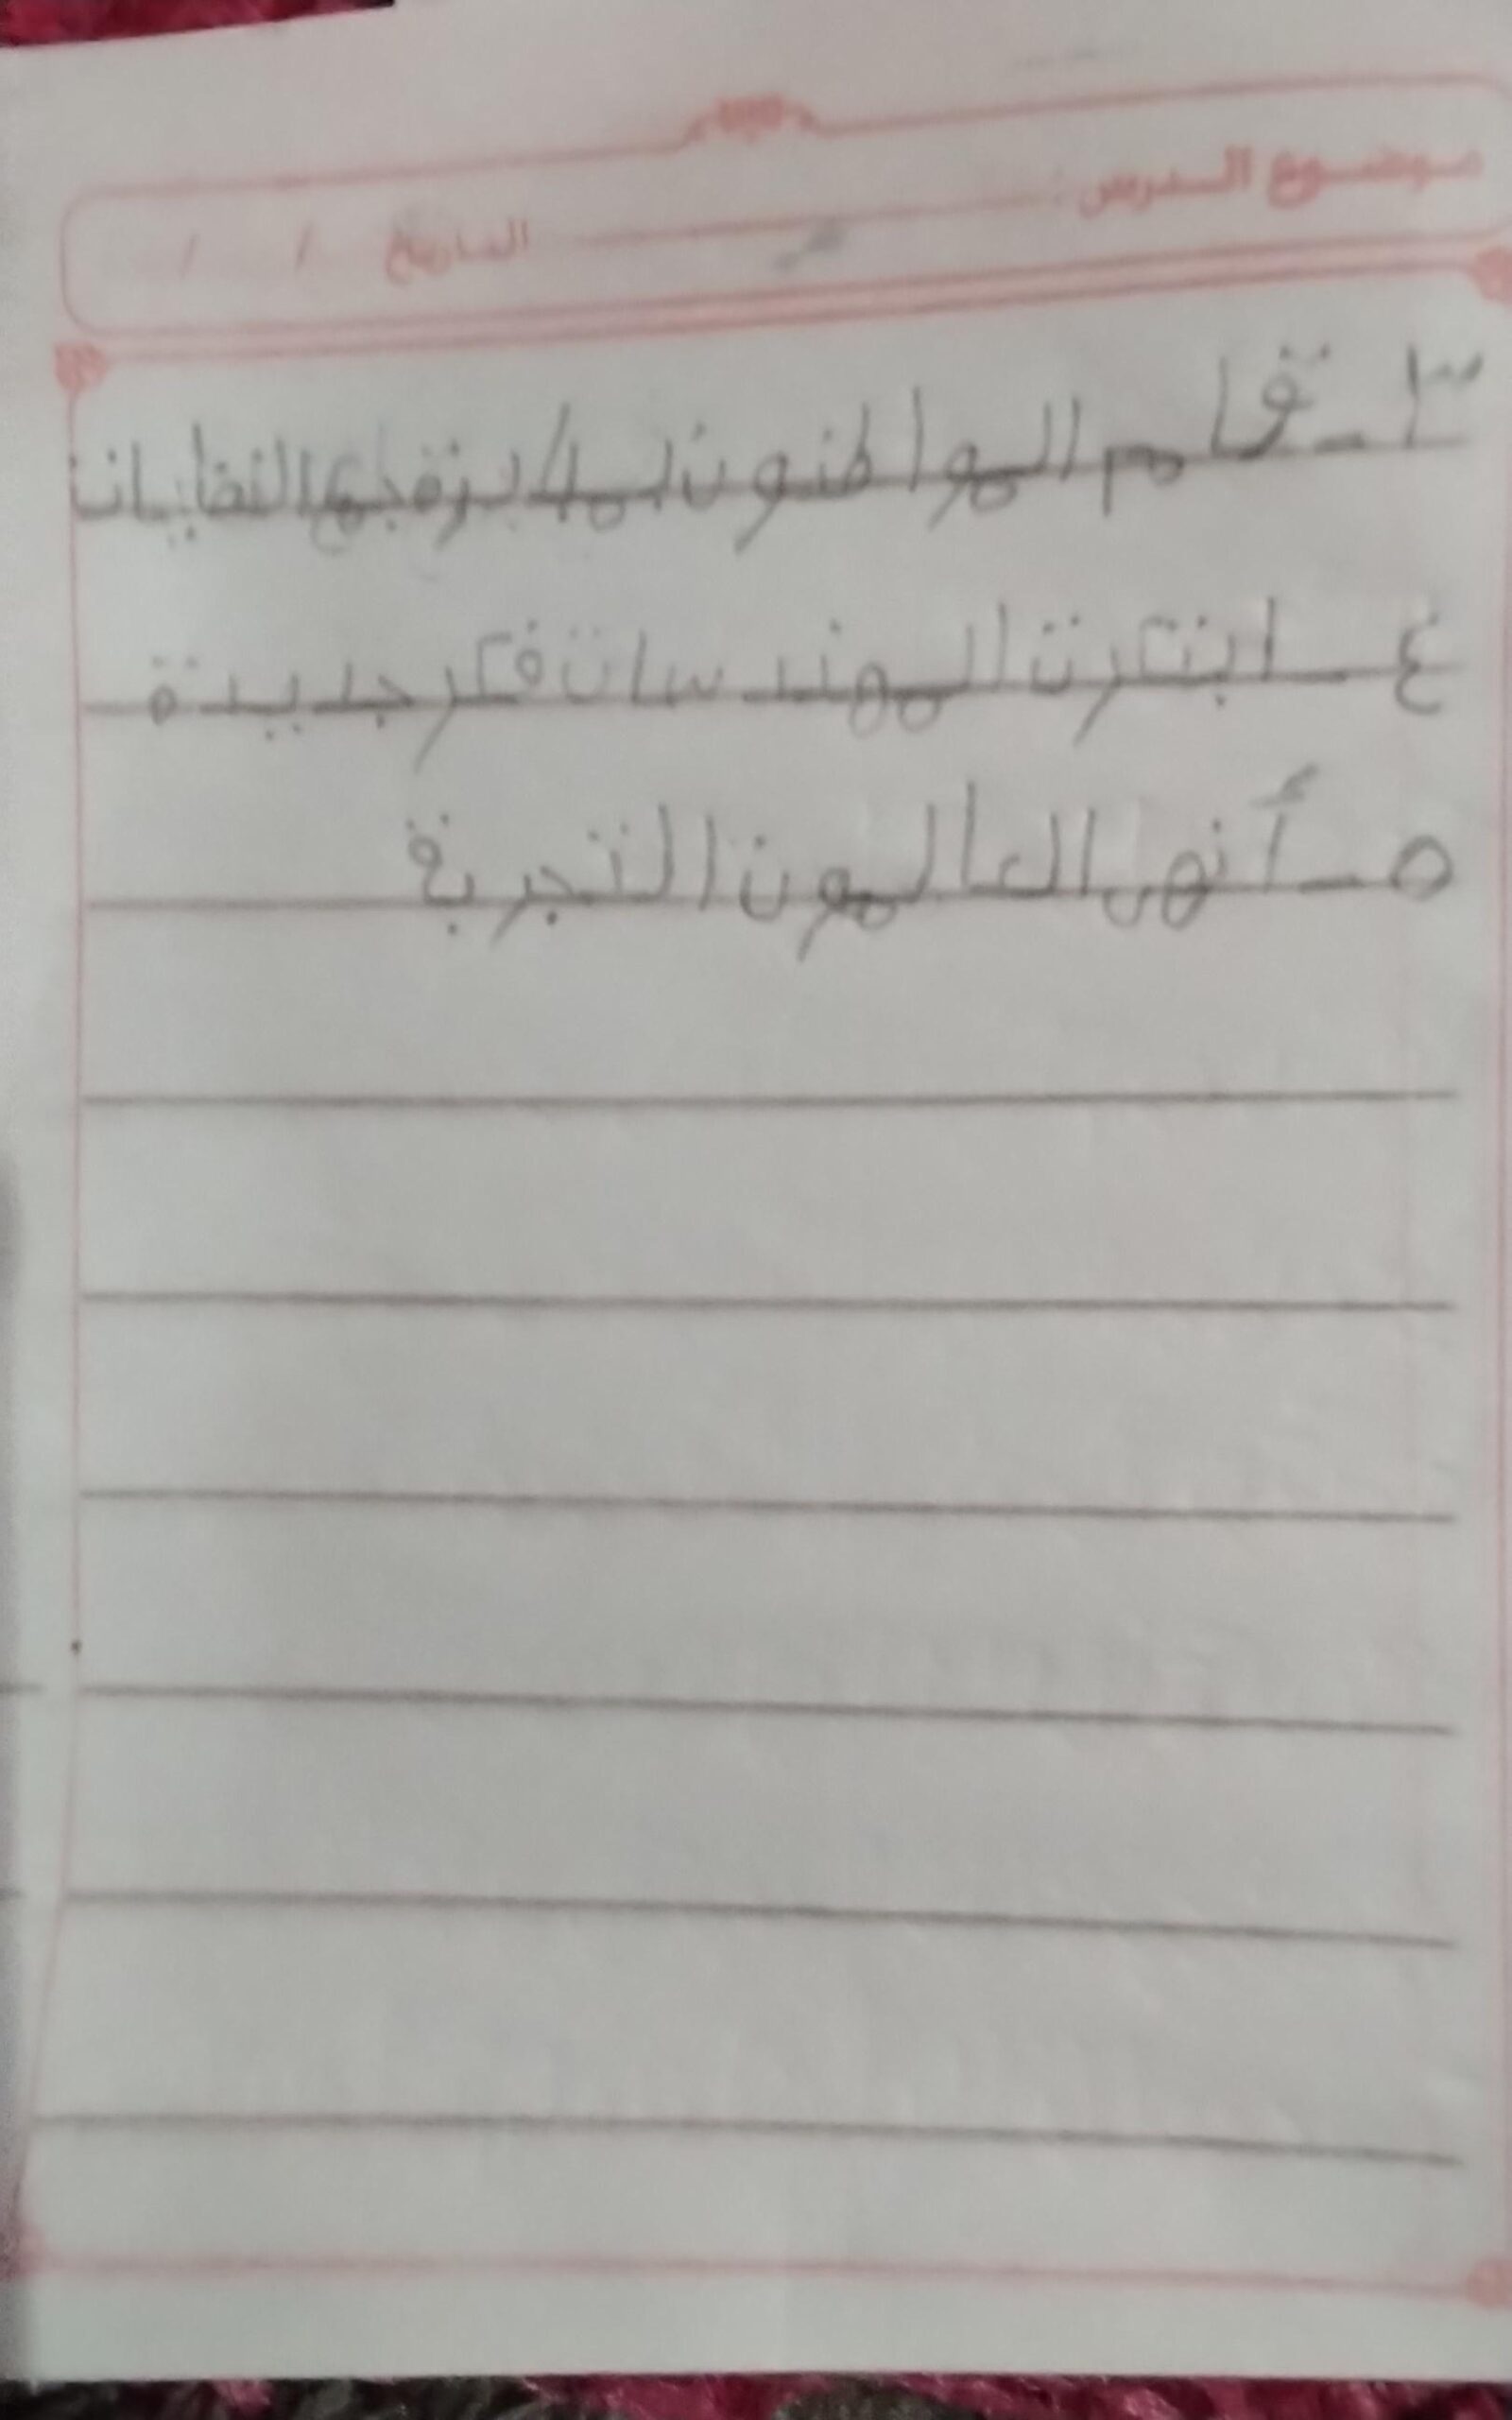 موضوع الدرس: التاريخ / /
٣ - قام المواطنون النفايات
٤ - ابتكرت المهندسات فكر جديدة
٥ - أنهى العالمون التجربة